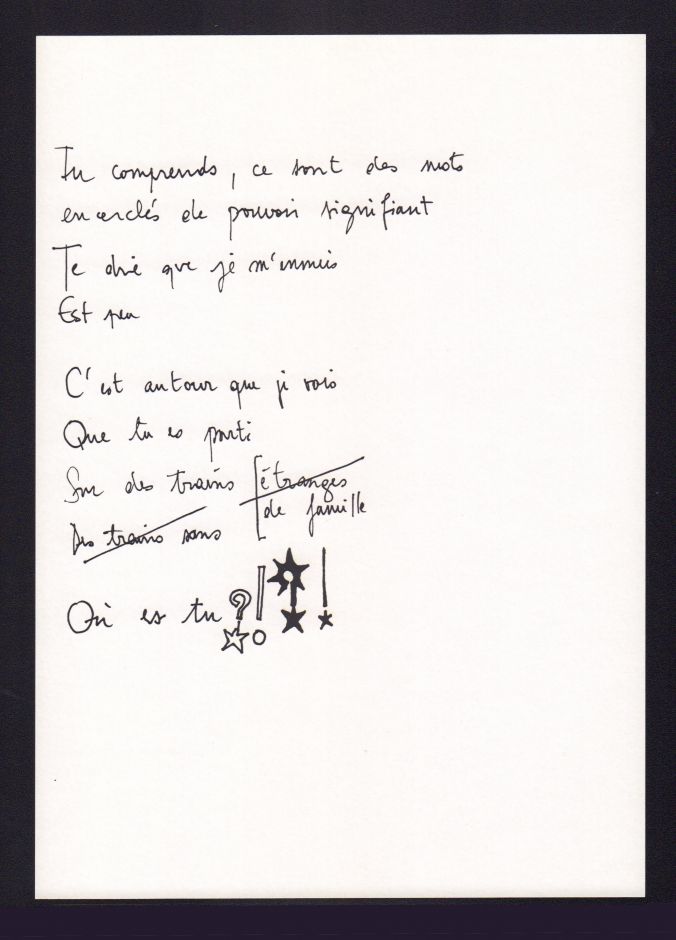 Tu comprends, ce sont des mots
encerclés de pouvoir signifiant
Te dire que je m'ennuis
Est peu
C'est autour que je vois
Que tu es parti
Sur des trains [étranges
Des trains sans [de famille
Où es tu ?!?!